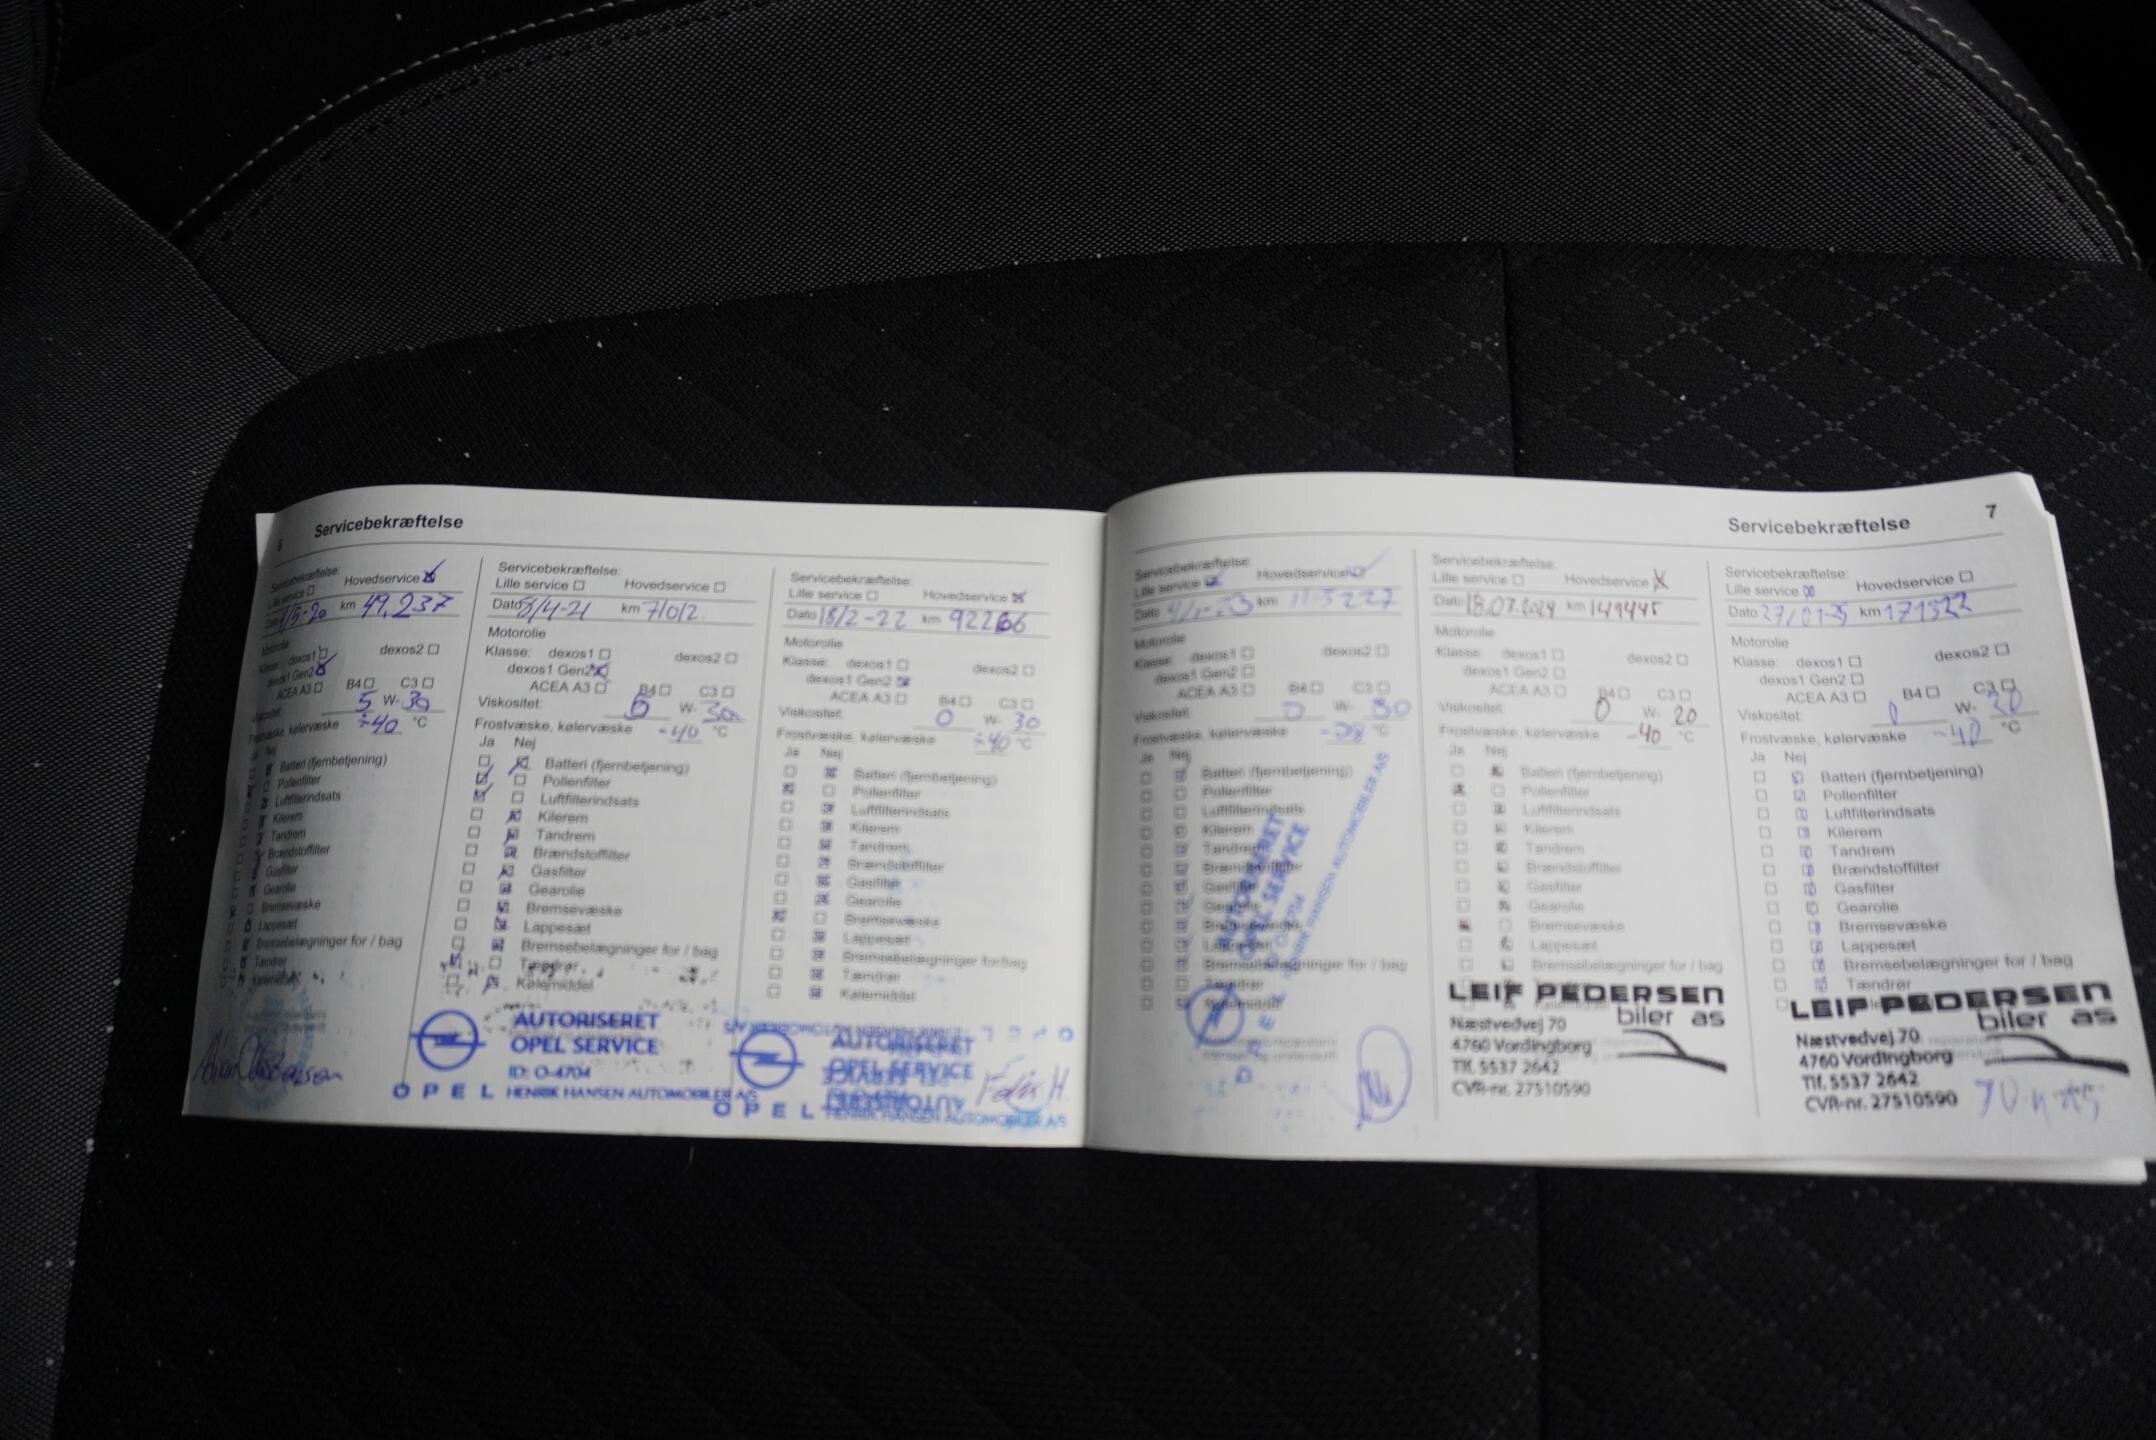 Servicebekræftelse
Servicebekræftelse:
Lille service Hovedservice
Dato /5-20 km 49.237
Motorolie
Klasse: dexos1 dexos2
dexos1 Gen2
ACEA A3 B4 C3
Viskositet: 5 W- 30
Frostvæske, kølervæske ÷40 °C
Ja Nej
Batteri (fjernbetjening)
Pollenfilter
Luftfilterindsats
Kilerem
Tandrem
Brændstoffilter
Gasfilter
Gearolie
Bremsevæske
Lappesæt
Bremsebelægninger for / bag
Tændrør
Kølemiddel
Servicebekræftelse:
Lille service Hovedservice
Dato /4-21 km 71012
Motorolie
Klasse: dexos1 dexos2
dexos1 Gen2
ACEA A3 B4 C3
Viskositet: W- 30
Frostvæske, kølervæske -40 °C
Ja Nej
Batteri (fjernbetjening)
Pollenfilter
Luftfilterindsats
Kilerem
Tandrem
Brændstoffilter
Gasfilter
Gearolie
Bremsevæske
Lappesæt
Bremsebelægninger for / bag
Tændrør
Kølemiddel
AUTORISERET
OPEL SERVICE
ID: O-4704
OPEL HENRIK HANSEN AUTOMOBILER A/S
Servicebekræftelse:
Lille service Hovedservice
Dato 18/2-22 km 92266
Motorolie
Klasse: dexos1 dexos2
dexos1 Gen2
ACEA A3 B4 C3
Viskositet: 0 W- 30
Frostvæske, kølervæske ÷40 °C
Ja Nej
Batteri (fjernbetjening)
Pollenfilter
Luftfilterindsats
Kilerem
Tandrem
Brændstoffilter
Gasfilter
Gearolie
Bremsevæske
Lappesæt
Bremsebelægninger for/bag
Tændrør
Kølemiddel
AUTORISERET
OPEL SERVICE
OPEL HENRIK HANSEN AUTOMOBILER A/S
Servicebekræftelse 7
Servicebekræftelse:
Lille service Hovedservice
Dato km
Motorolie
Klasse: dexos1 dexos2
dexos1 Gen2
ACEA A3 B4 C3
Viskositet: 0 W- 30
Frostvæske, kølervæske °C
Ja Nej
Batteri (fjernbetjening)
Pollenfilter
Luftfilterindsats
Kilerem
Tandrem
Brændstoffilter
Gasfilter
Gearolie
Bremsevæske
Lappesæt
Bremsebelægninger for / bag
Tændrør
Kølemiddel
AUTORISERET
OPEL SERVICE
HENRIK HANSEN AUTOMOBILER A/S
OPEL
Servicebekræftelse:
Lille service Hovedservice
Dato 18.03.2024 km 149445
Motorolie
Klasse: dexos1 dexos2
dexos1 Gen2
ACEA A3 B4 C3
Viskositet: 0 W- 20
Frostvæske, kølervæske -40 °C
Ja Nej
Batteri (fjernbetjening)
Pollenfilter
Luftfilterindsats
Kilerem
Tandrem
Brændstoffilter
Gasfilter
Gearolie
Bremsevæske
Lappesæt
Bremsebelægninger for / bag
LEIF PEDERSEN
biler as
Næstvedvej 70
4760 Vordingborg
Tlf. 5537 2642
CVR-nr. 27510590
Servicebekræftelse:
Lille service Hovedservice
Dato 27/01-25 km 171322
Motorolie
Klasse: dexos1 dexos2
dexos1 Gen2
ACEA A3 B4 C3
Viskositet: 0 W- 20
Frostvæske, kølervæske -40 °C
Ja Nej
Batteri (fjernbetjening)
Pollenfilter
Luftfilterindsats
Kilerem
Tandrem
Brændstoffilter
Gasfilter
Gearolie
Bremsevæske
Lappesæt
Bremsebelægninger for / bag
Tændrør
LEIF PEDERSEN
biler as
Næstvedvej 70
4760 Vordingborg
Tlf. 5537 2642
CVR-nr. 27510590